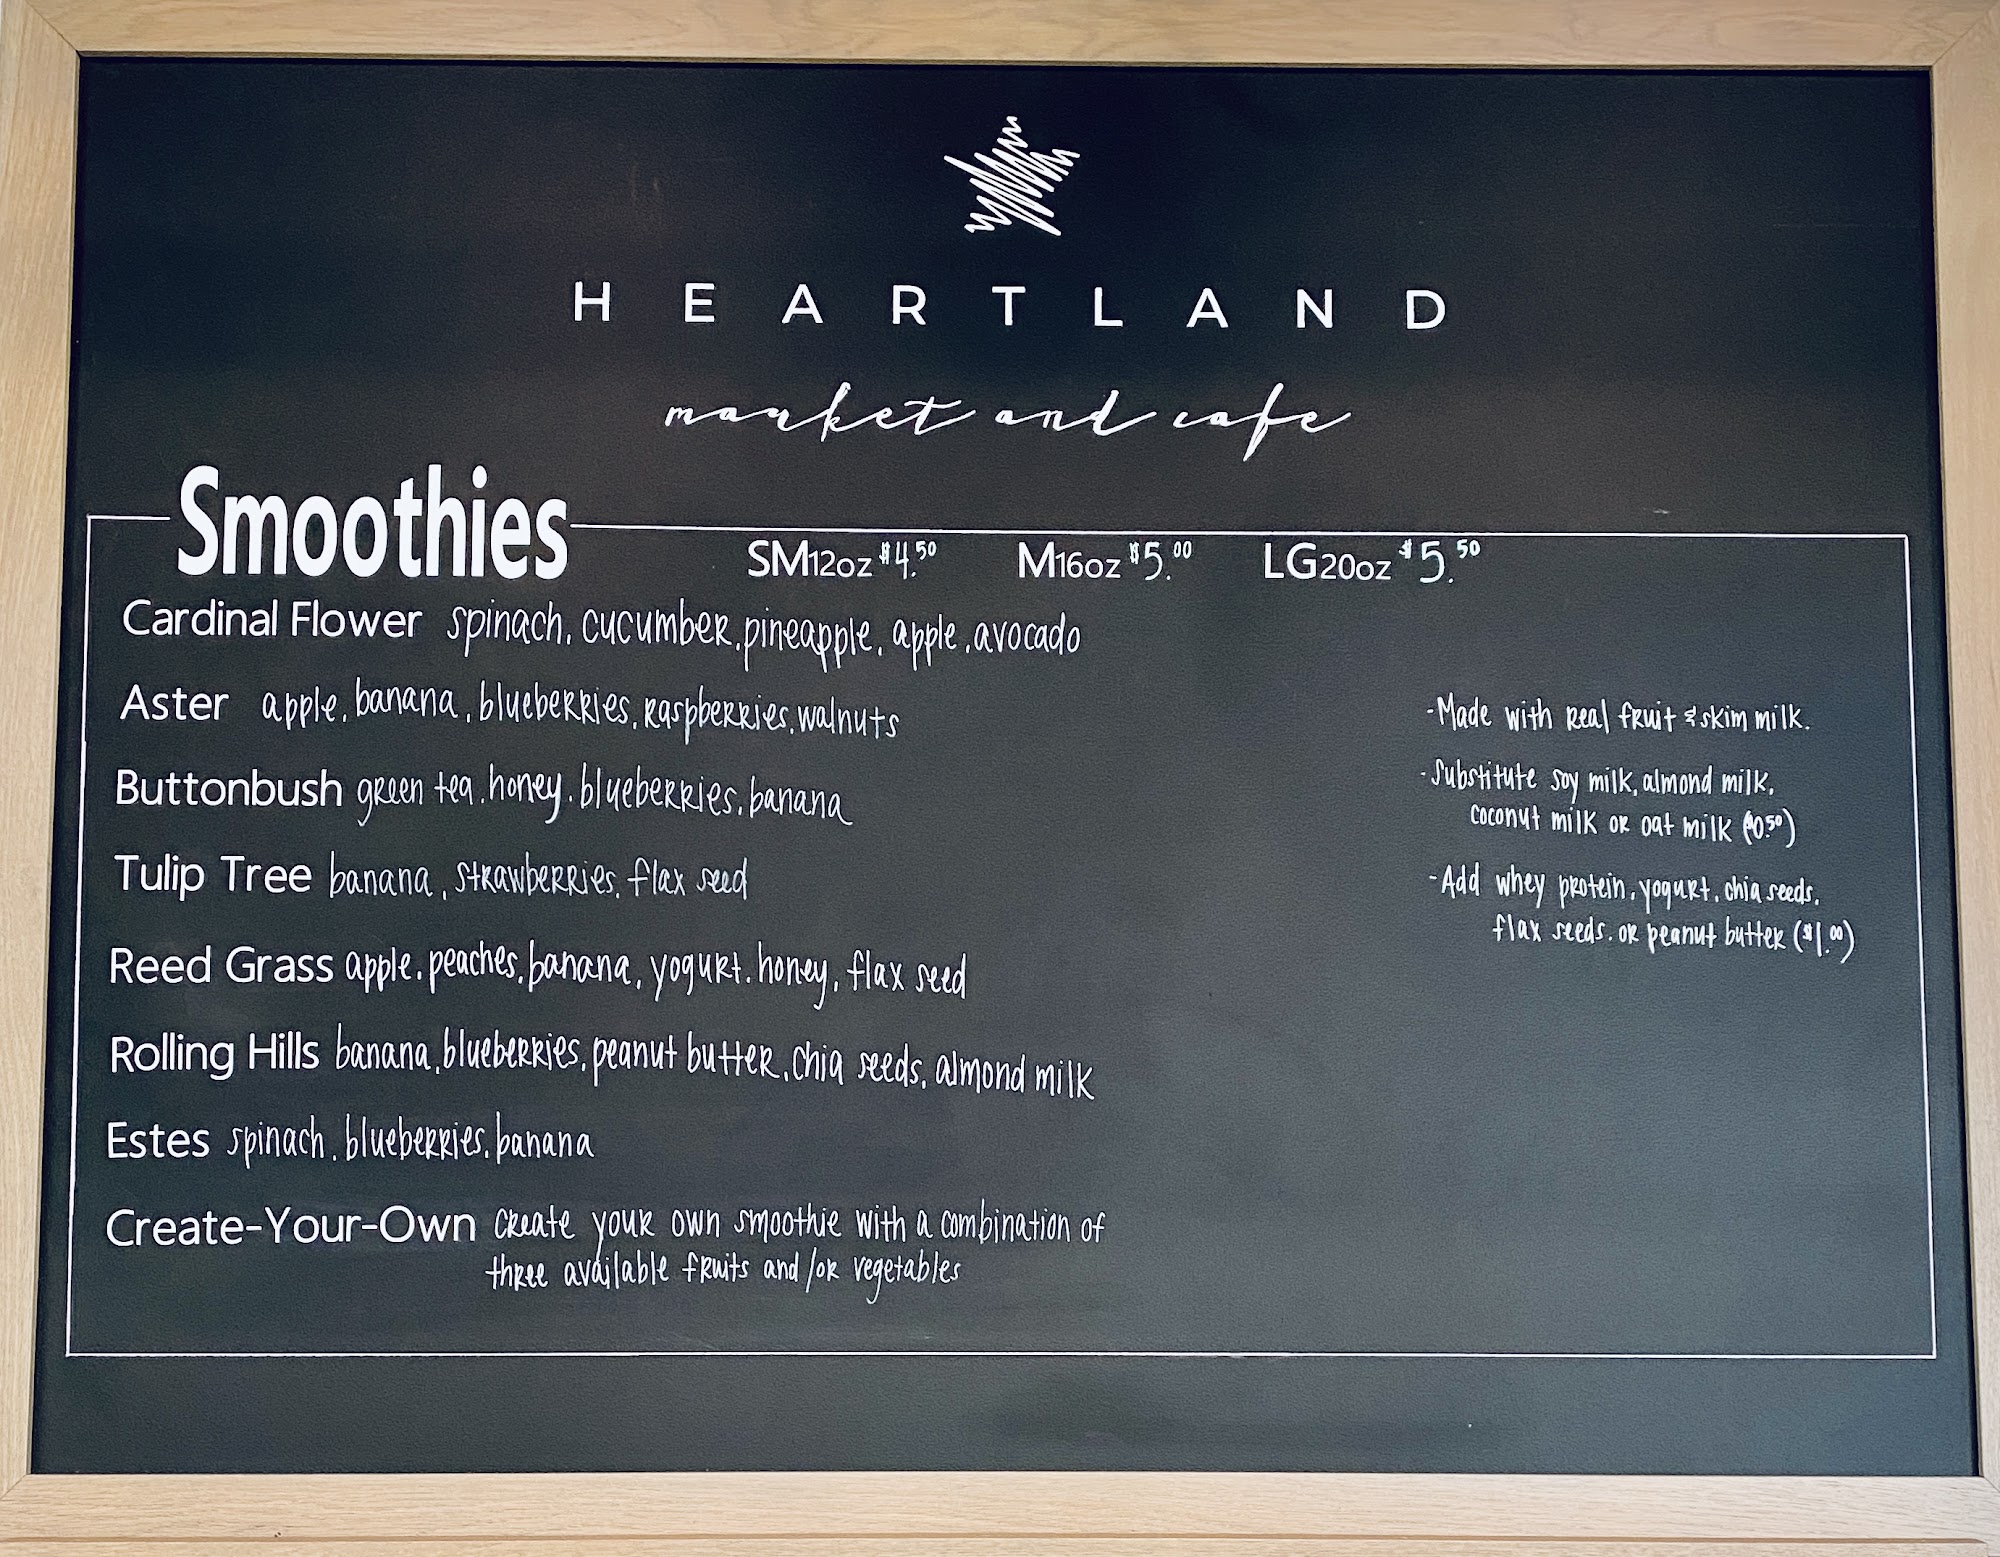 HEARTLAND
market and cafe
Smoothies
SM12oz $4.50 M16oz $5.00 LG20oz $5.50
Cardinal Flower spinach, cucumber, pineapple, apple, avocado
Aster apple, banana, blueberries, raspberries, walnuts
Buttonbush green tea, honey, blueberries, banana
Tulip Tree banana, strawberries, flax seed
Reed Grass apple, peaches, banana, yogurt, honey, flax seed
Rolling Hills banana, blueberries, peanut butter, chia seeds, almond milk
Estes spinach, blueberries, banana
Create-Your-Own create your own smoothie with a combination of
three available fruits and/or vegetables
-Made with real fruit & skim milk.
-Substitute soy milk, almond milk,
coconut milk or oat milk ($0.50)
-Add whey protein, yogurt, chia seeds,
flax seeds, or peanut butter ($1.00)